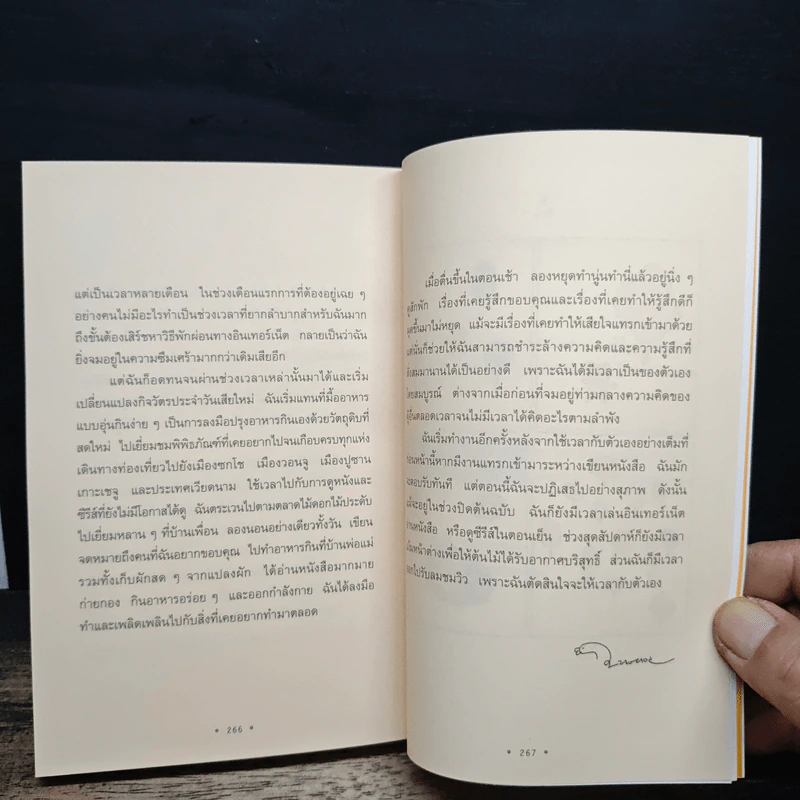 แต่เป็นเวลาหลายเดือน ในช่วงเดือนแรกการที่ต้องอยู่เฉย ๆ
อย่างคนไม่มีอะไรทำเป็นช่วงเวลาที่ยากลำบากสำหรับฉันมาก
ถึงขั้นต้องเสิร์ชหาวิธีพักผ่อนทางอินเทอร์เน็ต กลายเป็นว่าฉัน
ยิ่งจมอยู่ในความซึมเศร้ามากกว่าเดิมเสียอีก
แต่ฉันก็อดทนจนผ่านช่วงเวลาเหล่านั้นมาได้และเริ่ม
เปลี่ยนแปลงกิจวัตรประจำวันเสียใหม่ ฉันเริ่มแทนที่มื้ออาหาร
แบบอุ่นกินง่าย ๆ เป็นการลงมือปรุงอาหารกินเองด้วยวัตถุดิบที่
สดใหม่ ไปเยี่ยมชมพิพิธภัณฑ์ที่เคยอยากไปจนเกือบครบทุกแห่ง
เดินทางท่องเที่ยวไปยังเมืองซกโช เมืองวอนจู เมืองปูซาน
เกาะเชจู และประเทศเวียดนาม ใช้เวลาไปกับการดูหนังและ
ซีรีส์ที่ยังไม่มีโอกาสได้ดู ฉันตระเวนไปตามตลาดไม้ดอกไม้ประดับ
ไปเยี่ยมหลาน ๆ ที่บ้านเพื่อน ลองนอนอย่างเดียวทั้งวัน เขียน
จดหมายถึงคนที่ฉันอยากขอบคุณ ไปทำอาหารกินที่บ้านพ่อแม่
รวมทั้งเก็บผักสด ๆ จากแปลงผัก ได้อ่านหนังสือมากมาย
ก่ายกอง กินอาหารอร่อย ๆ และออกกำลังกาย ฉันได้ลงมือ
ทำและเพลิดเพลินไปกับสิ่งที่เคยอยากทำมาตลอด
* 266 *
เมื่อตื่นขึ้นในตอนเช้า ลองหยุดทำนู่นทำนี่แล้วอยู่นิ่ง ๆ
ดูสักพัก เรื่องที่เคยรู้สึกขอบคุณและเรื่องที่เคยทำให้รู้สึกดีก็
ขึ้นมาไม่หยุด แม้จะมีเรื่องที่เคยทำให้เสียใจแทรกเข้ามาด้วย
แต่นั่นก็ช่วยให้ฉันสามารถชำระล้างความคิดและความรู้สึกที่
สั่งสมมานานได้เป็นอย่างดี เพราะฉันได้มีเวลาเป็นของตัวเอง
โดยสมบูรณ์ ต่างจากเมื่อก่อนที่จมอยู่ท่ามกลางความคิดของ
ผู้อื่นตลอดเวลาจนไม่มีเวลาได้คิดอะไรตามลำพัง
ฉันเริ่มทำงานอีกครั้งหลังจากใช้เวลากับตัวเองอย่างเต็มที่
ก่อนหน้านี้หากมีงานแทรกเข้ามาระหว่างเขียนหนังสือ ฉันมัก
จะตอบรับทันที แต่ตอนนี้ฉันจะปฏิเสธไปอย่างสุภาพ ดังนั้น
แม้จะอยู่ในช่วงปิดต้นฉบับ ฉันก็ยังมีเวลาเล่นอินเทอร์เน็ต
อ่านหนังสือ หรือดูซีรีส์ในตอนเย็น ช่วงสุดสัปดาห์ก็ยังมีเวลา
หน้าต่างเพื่อให้ต้นไม้ได้รับอากาศบริสุทธิ์ ส่วนฉันก็มีเวลา
ออกไปรับลมชมวิว เพราะฉันตัดสินใจจะให้เวลากับตัวเอง
* 267 *